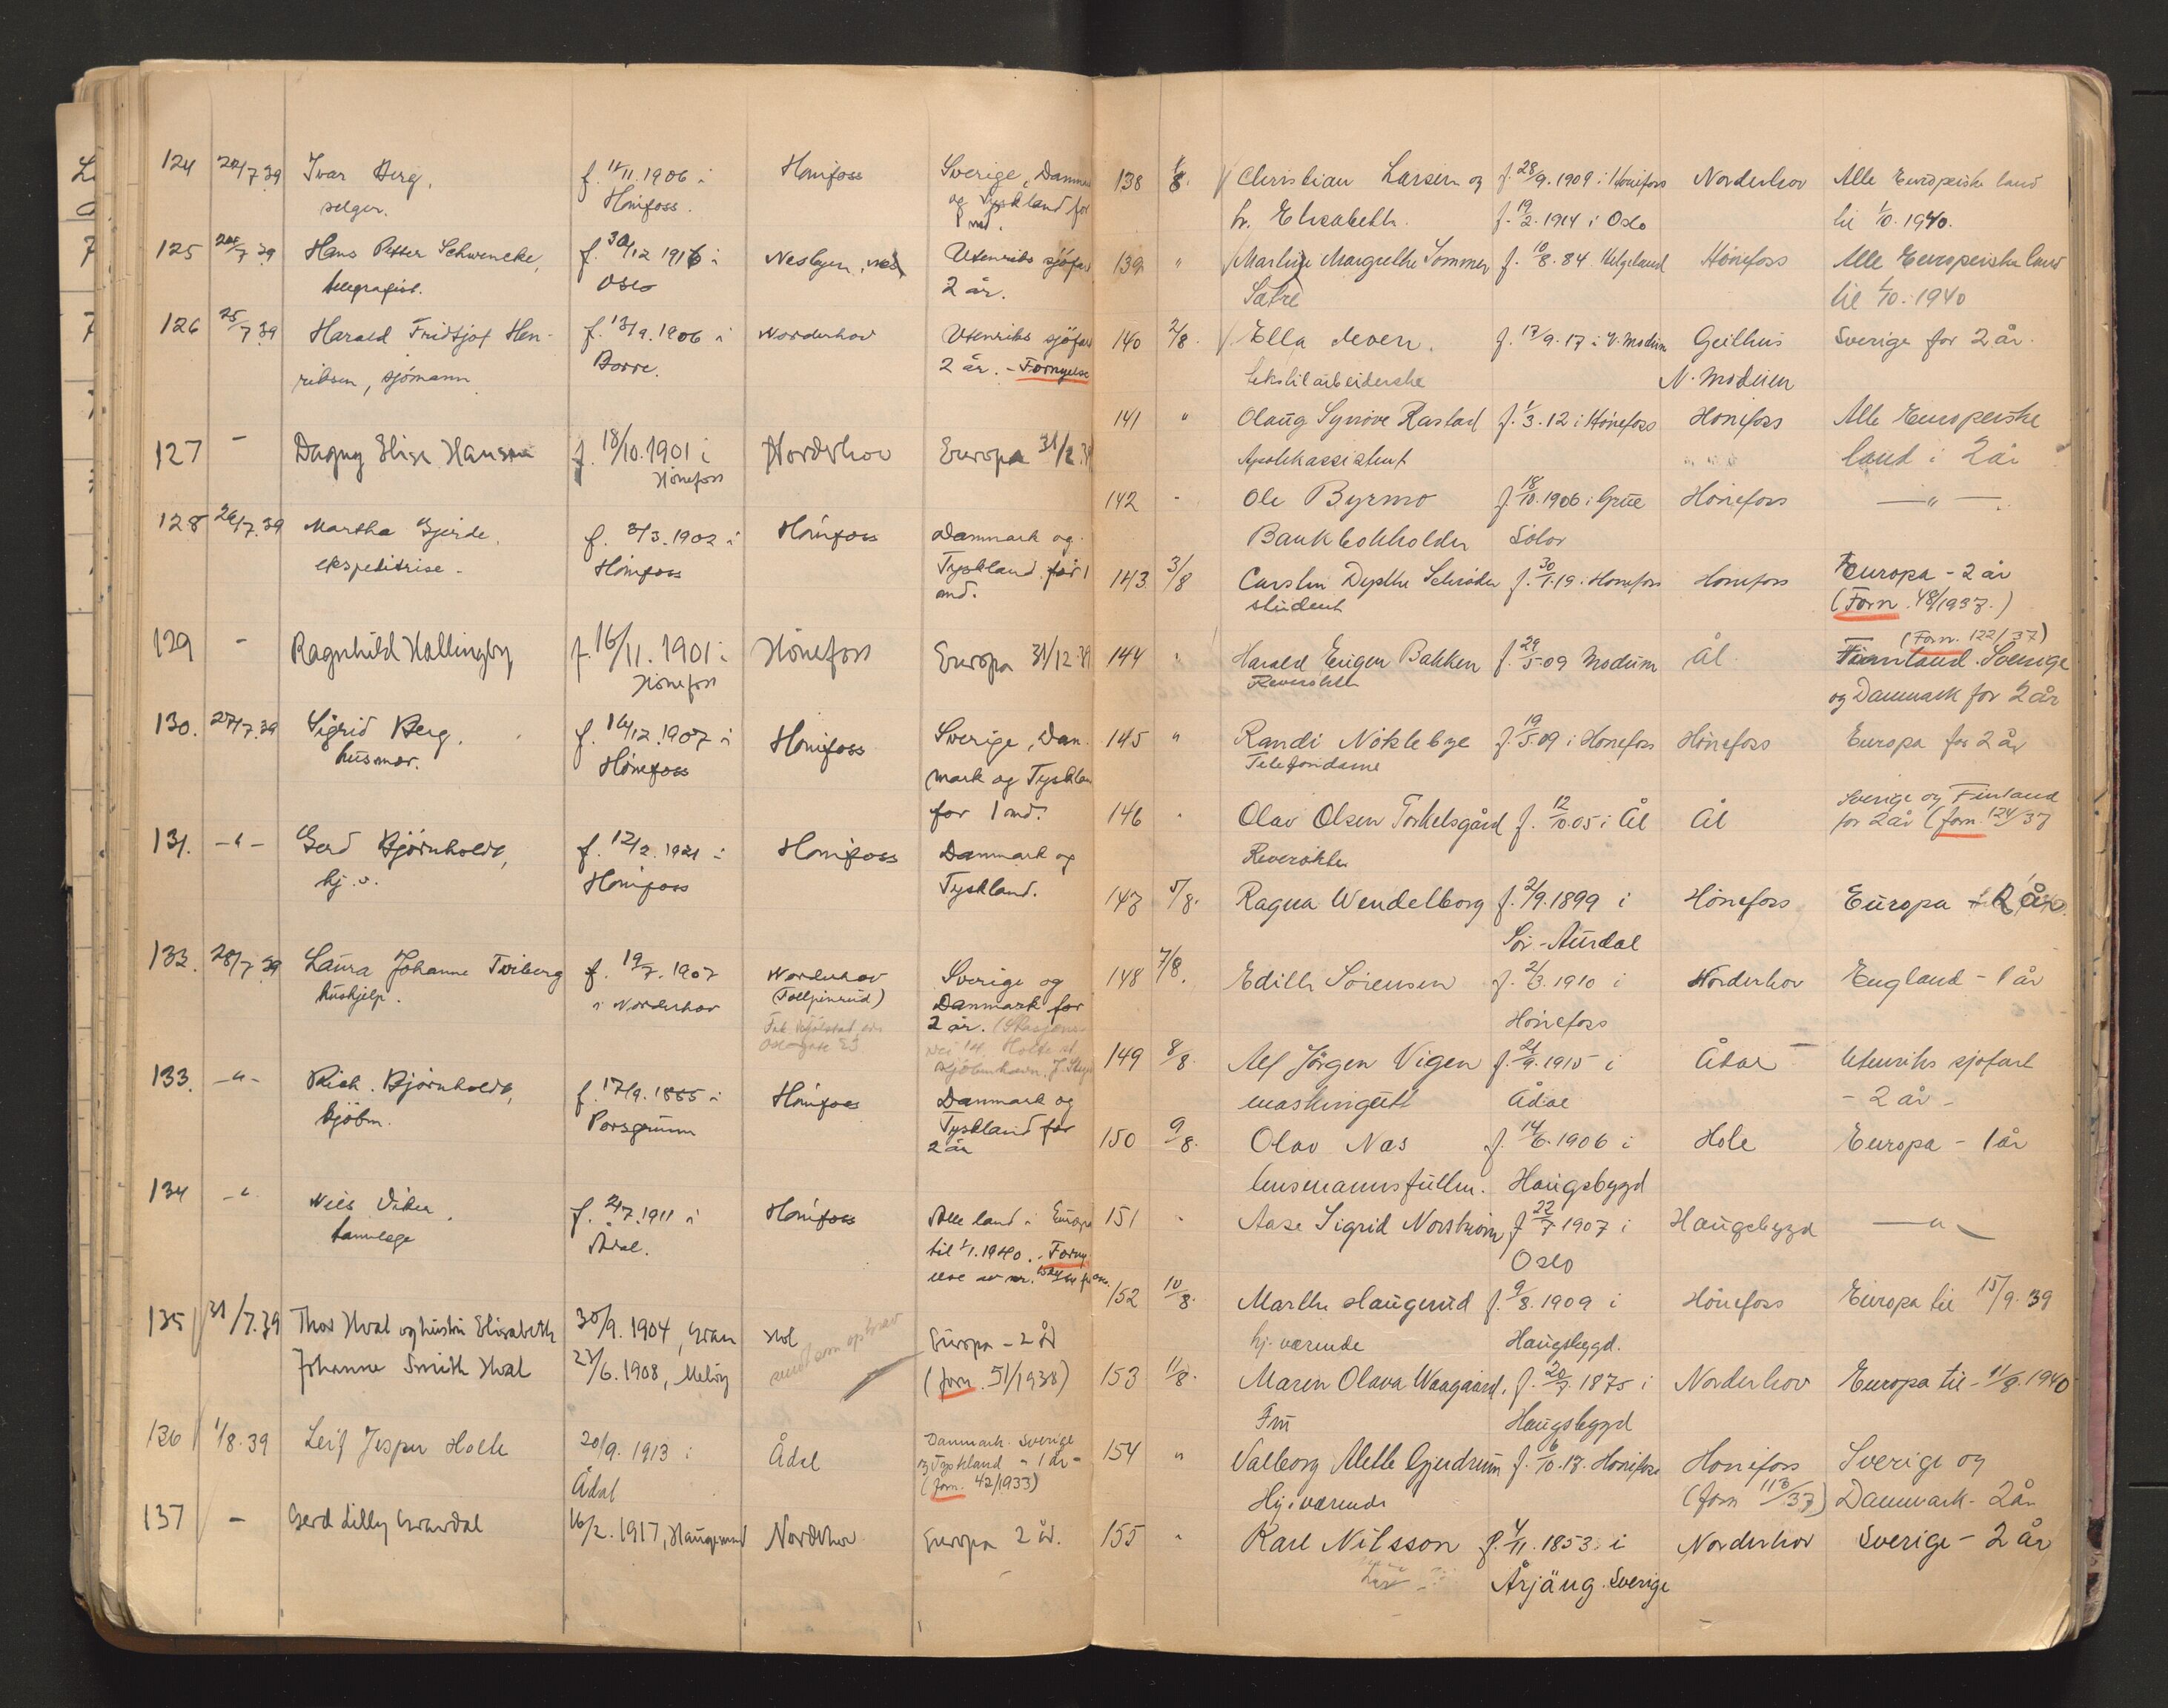 124 24/7.39 Ivar Berg, f. 11/11.1906 i Hönefoss Sverige, Danm
selger. Hönefoss. og Tyskland for
1 md.
125 24/7 39 Hans Petter Schwencke, f. 30/12 1916 i Nesbyen, nes Utenriks sjöfar
telegrafist. Oslo 2 år.
126 25/7 39 Harald Fridtjof Hen- f. 13/9.1906 i Norderhov Utenriks sjöfar
riksen, sjömann Borre. 2 år. - Fornyelse
127 - Dagny Elise Hansen f. 18/10.1901 i Norderhov Europa 31/12.39
Hönefoss
128 26/7.39 Martha Gjerde, f. 3/3.1902 i Hönefoss Danmark og
ekspeditrise. Hönefoss Tyskland for 1
md.
129 - Ragnhild Hallingby f. 16/11.1901 i Hönefoss Europa 31/12.39
Hönefoss
130. 27/7.39 Sigrid Berg, f. 14/12.1907 i Hönefoss Sverige, Dan
husmor. Hönefoss mark og Tysklan
for 1 md.
131. -"- Gerd Björnholdt, f. 12/2.1921 i Hönefoss Danmark og
hj.v. Hönefoss Tyskland.
132. 28/7.39 Laura Johanne Tviberg f. 19/7.1907 Norderhov Sverige og
hushjelp. i Norderhov (Follpinrud) Danmark for
2 år. (Stasjons
vei 14. Holte st
Kjöbenhavn.
133. -"- Rich. Björnholdt, f. 17/9.1885 i Hönefoss Danmark og
kjöbm. Porsgrunn Tyskland for
2 år
134 -"- Nils Viker, f. 21/7.1911 i Hönefoss Alle land i Europa
tannlege Ådal. til 1/1.1940. - Forny
else av nr.
135 31/7.39 Thor Hval og hustru Elisabeth 30/9.1904, Gran Hol Europa - 2 år
Johanne Smith Hval 23/6.1908, Melöy (forn. 51/1938)
136 1/8.39 Leif Jesper Holte 20/9.1913 i Ådal Danmark. Sverige
Ådal og Tyskland - 1 år -
(forn. 42/1933)
137 - Gerd Lilly Grandal 16/2.1917, Haugesund Norderhov Europa 2 år.
138 1/8. Christian Larsen og f. 28/9.1909 i Hönefoss Norderhov Alle Europeiske land
h. Elisabeth. f. 19/2.1914 i Oslo til 1/10.1940.
139 " Martine Margrethe Sommer f. 10/8.84 Helgeland Hönefoss Alle Europeiske land
Sætre til 1/10.1940
140 2/8. Ella Leven. f. 17/9.17 i V. Modum Geithus Sverige for 2 år.
tekstilarbeiderske N. Modum
141 " Olaug Synnöve Rastad f. 1/3.12 i Hönefoss Hönefoss Alle Europeiske
Apotekassistent land i 2 år
142 " Ole Byrmo f. 18/10.1906 i Grue Hönefoss -"-
Bankbokholder Solør
143 3/8 Carsten Dysthe Schröder f. 30/1.19. Hönefoss Hönefoss Europa - 2 år
student (Forn. 48/1937.)
144 " Harald Eugen Bakken f. 29/5-09 Modum Ål (Forn. 122/37)
Finnland. Sverige
Reverökter og Danmark for 2 år
145 " Randi Nöklebye f. 19/5.09 i Hönefoss Hönefoss Europa for 2 år
Telefondame
146 " Olav Olsen Torkelsgård f. 12/10.05 i Ål Ål Sverige og Finland
for 2 år (forn. 124/37
Reverökter
147 5/8. Ragna Wendelborg f. 2/9.1899 i Hönefoss Europa - 2 år.
Sör-Aurdal
148 7/8. Edith Sörensen f. 2/3.1910 i Norderhov England - 1 år
Hönefoss
149 8/8. Alf Jörgen Vigen f. 21/9.1915 i Ådal Utenriks sjöfart
maskingutt Ådal - 2 år -
150 9/8. Olav Næs f. 14/6.1906 i Hole Europa - 1 år
lensmannsfullm. Haugsbygd
151 " Aase Sigrid Norström f. 22/7 1907 i Haugsbygd -"-
Oslo
152 10/8. Marthe Haugerud f. 9/8.1909 i Hönefoss Europa til 15/9.39
hj. værende Haugsbygd.
153 11/8. Maren Olava Waagaard, f. 20/7.1875 i Norderhov Europa til 11/8.1940
Fru Haugsbygd
154 " Valborg Alette Gjerdrum f. 6/10.17. Hönefoss Hönefoss Sverige og
Hj. værende (forn 113/37) Danmark - 2 år
155 " Karl Nilsson f. 4/11.1853 i Norderhov Sverige - 2 år
Årjäng. Sverige